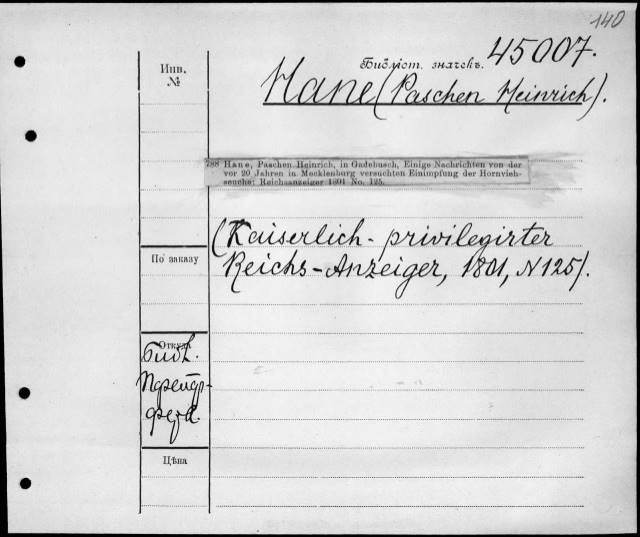 140
Библіот. значекъ. 45007.
Инв.
№
Hane (Paschen Heinrich).
288 Hane, Paschen Heinrich, in Gadebusch, Einige Nachrichten von der
vor 20 Jahren in Mecklenburg versuchten Einimpfung der Hornvieh-
seuche; Reichsanzeiger 1801 No. 125.
(Kaiserlich-privilegirter
По заказу
Reichs-Anzeiger, 1801, N 125).
Откуда
Библ.
Цѣна